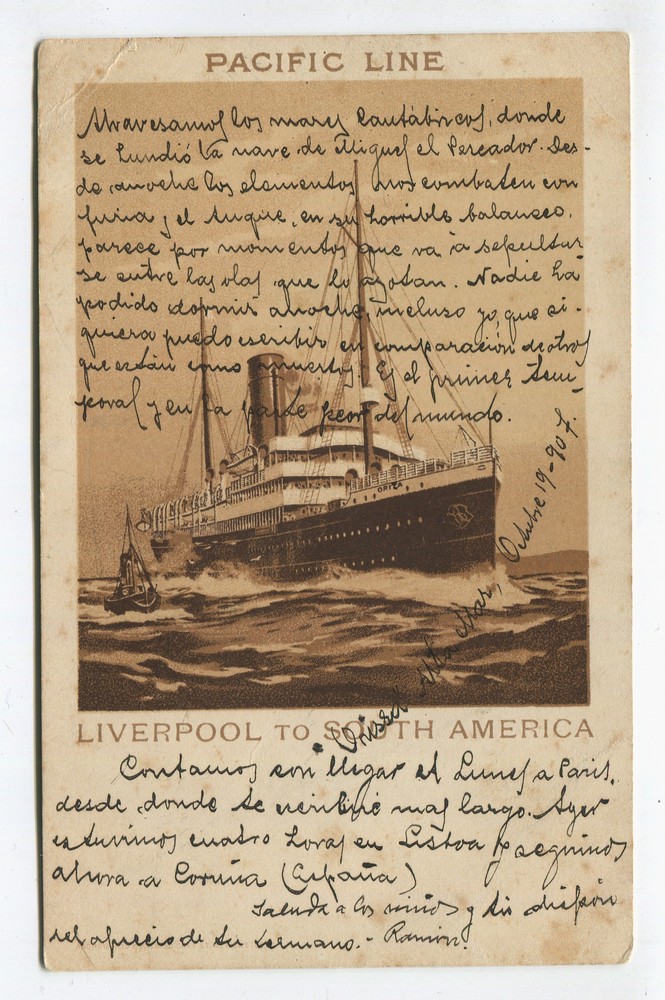 PACIFIC LINE
Atravesamos los mares Cantábricos, donde
se hundió la nave de Miguel el Pescador. Des-
de anoche los elementos nos combaten con
furia y el buque, en su horrible balanceo,
parece por momentos que va a sepultar
se entre las olas que lo azotan. Nadie ha
podido dormir anoche, incluso yo, que si-
quiera puedo escribir en comparación de otros
que están como muertos. Es el primer tem-
poral y en la parte peor del mundo.
ORITA
Orissa Alta Mar, Octubre 19-907.
LIVERPOOL TO SOUTH AMERICA
Contamos con llegar el Lunes a Paris,
desde donde te escribiré mas largo. Ayer
estuvimos cuatro horas en Lisboa y seguimos
ahora a Coruña (España)
Saluda a los niños y tu dispón
del aprecio de tu hermano. - Ramón.